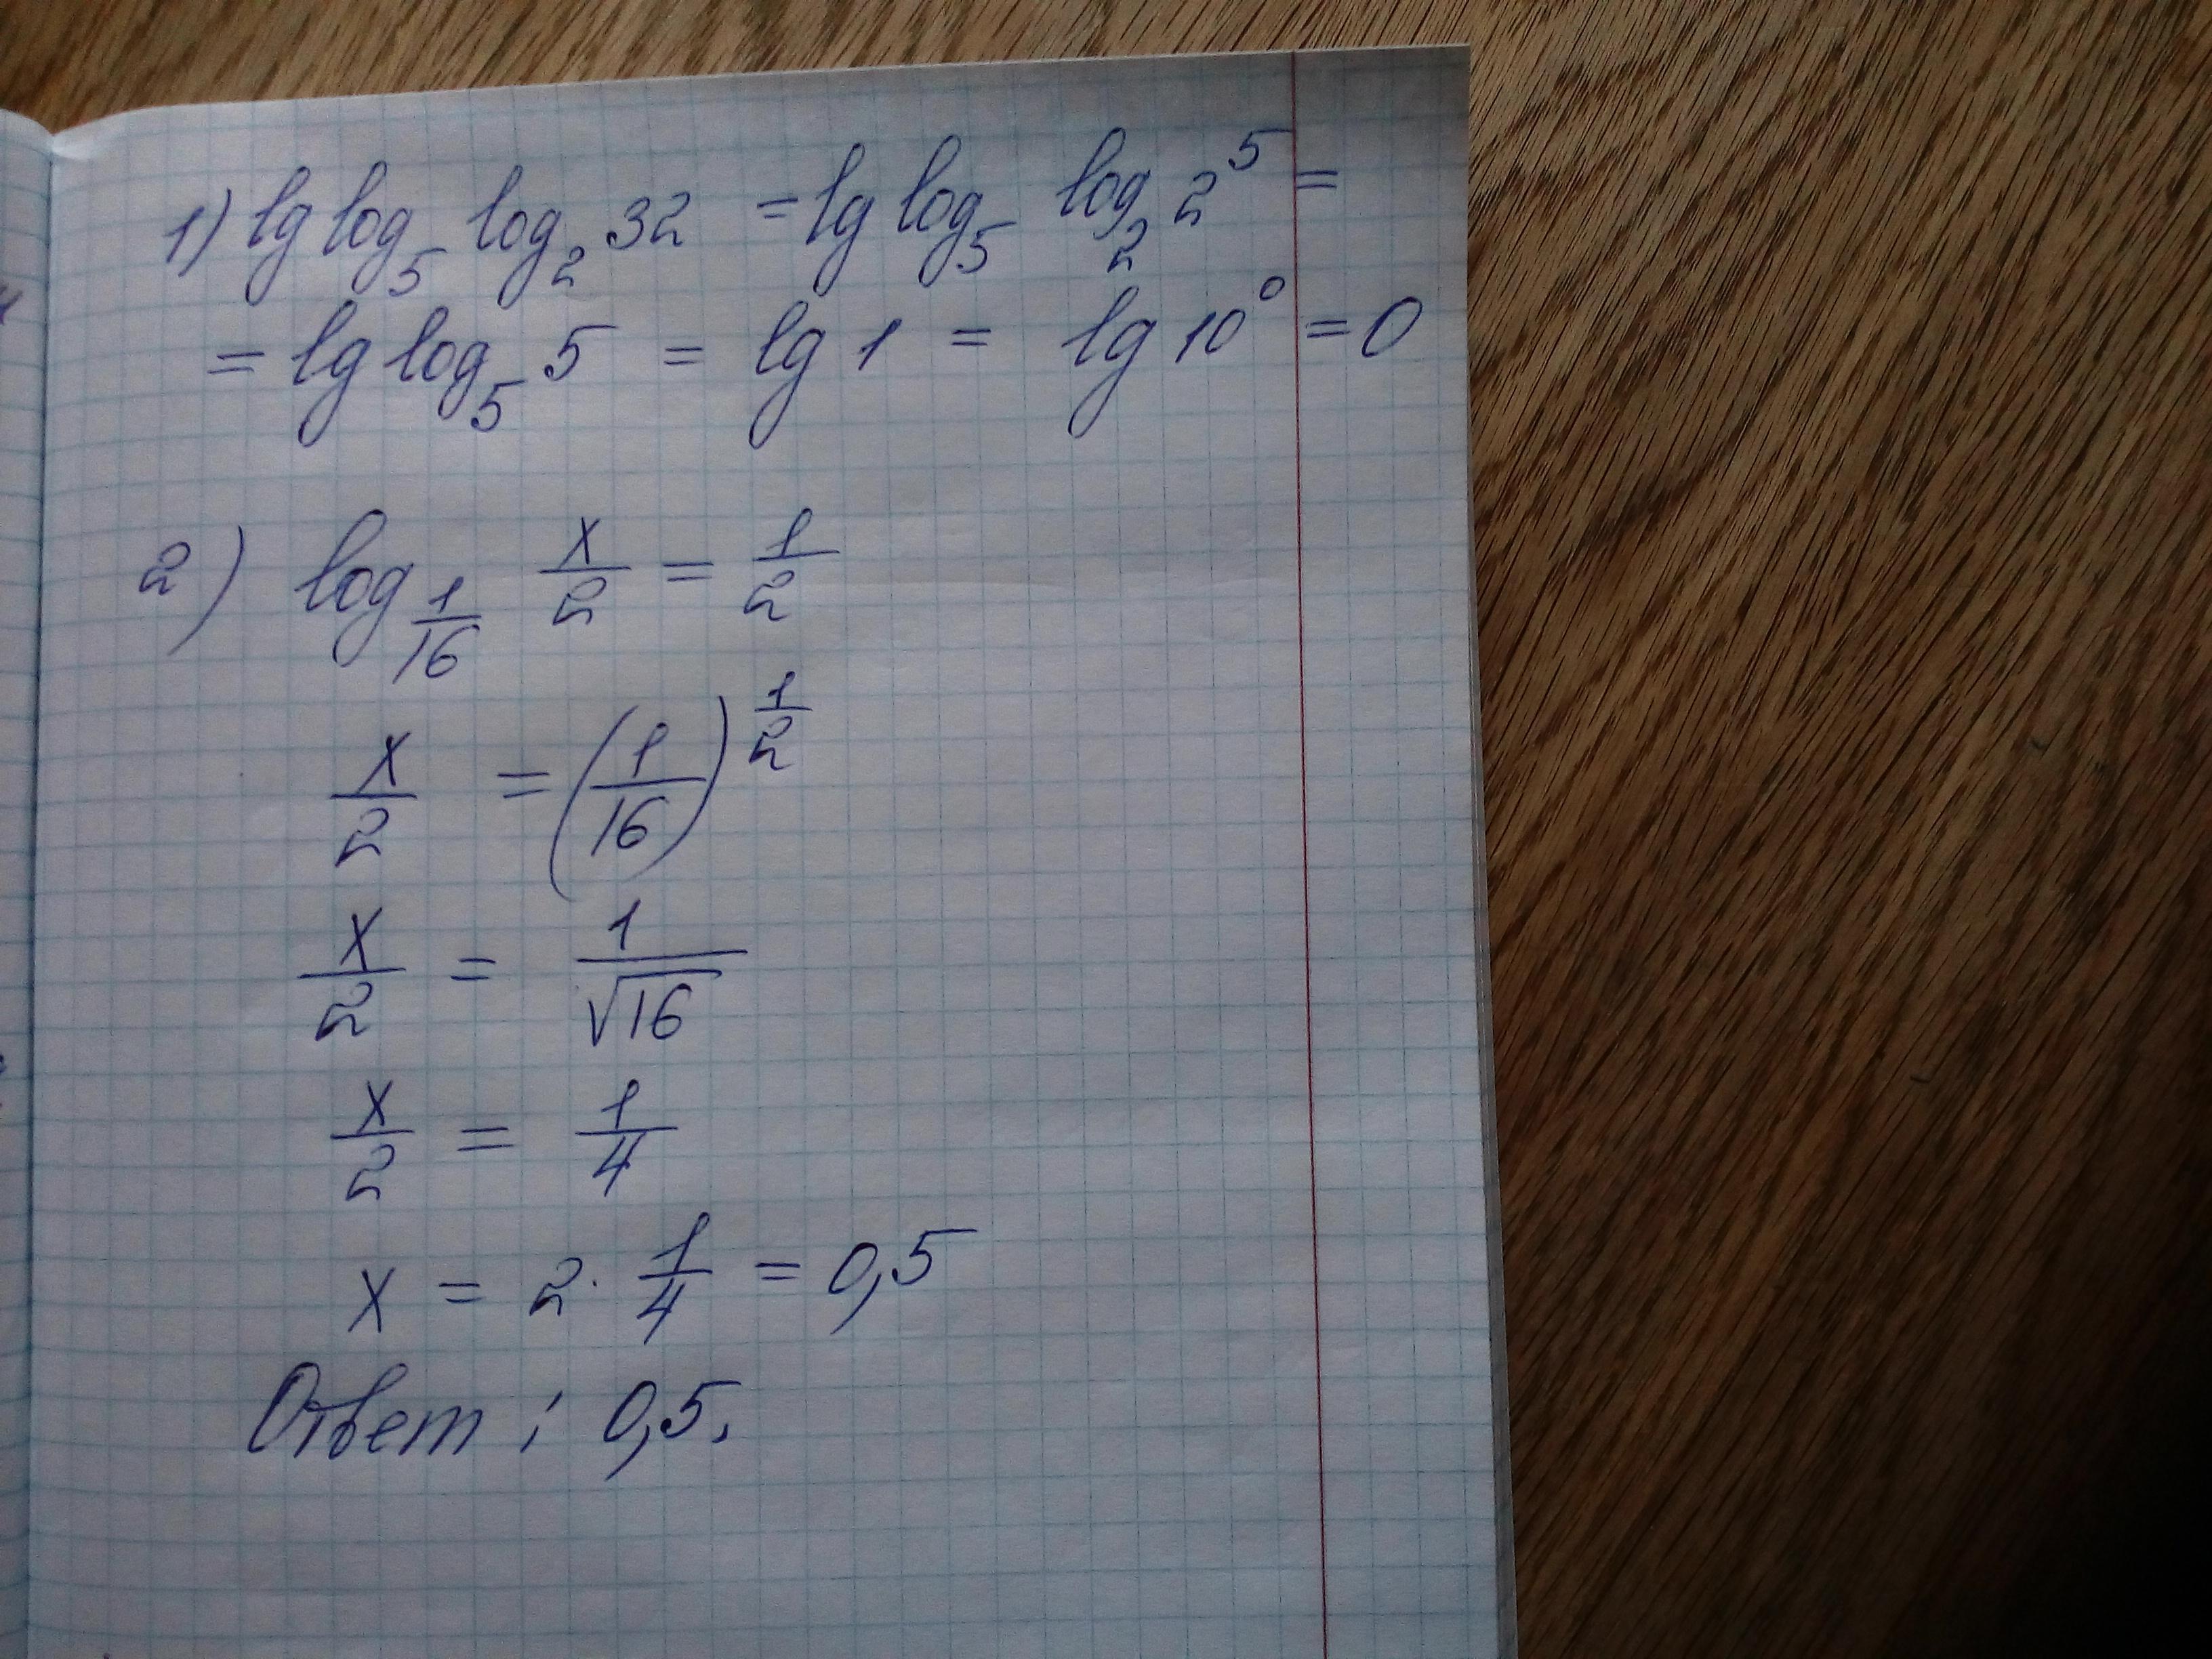 1) lg log₅ log₂ 32 = lg log₅ log₂ 2⁵ =
= lg log₅ 5 = lg 1 = lg 10⁰ = 0
2) log_{1/16} x/2 = 1/2
x/2 = (1/16)^{1/2}
x/2 = 1/√16
x/2 = 1/4
x = 2 · 1/4 = 0,5
Ответ : 0,5.